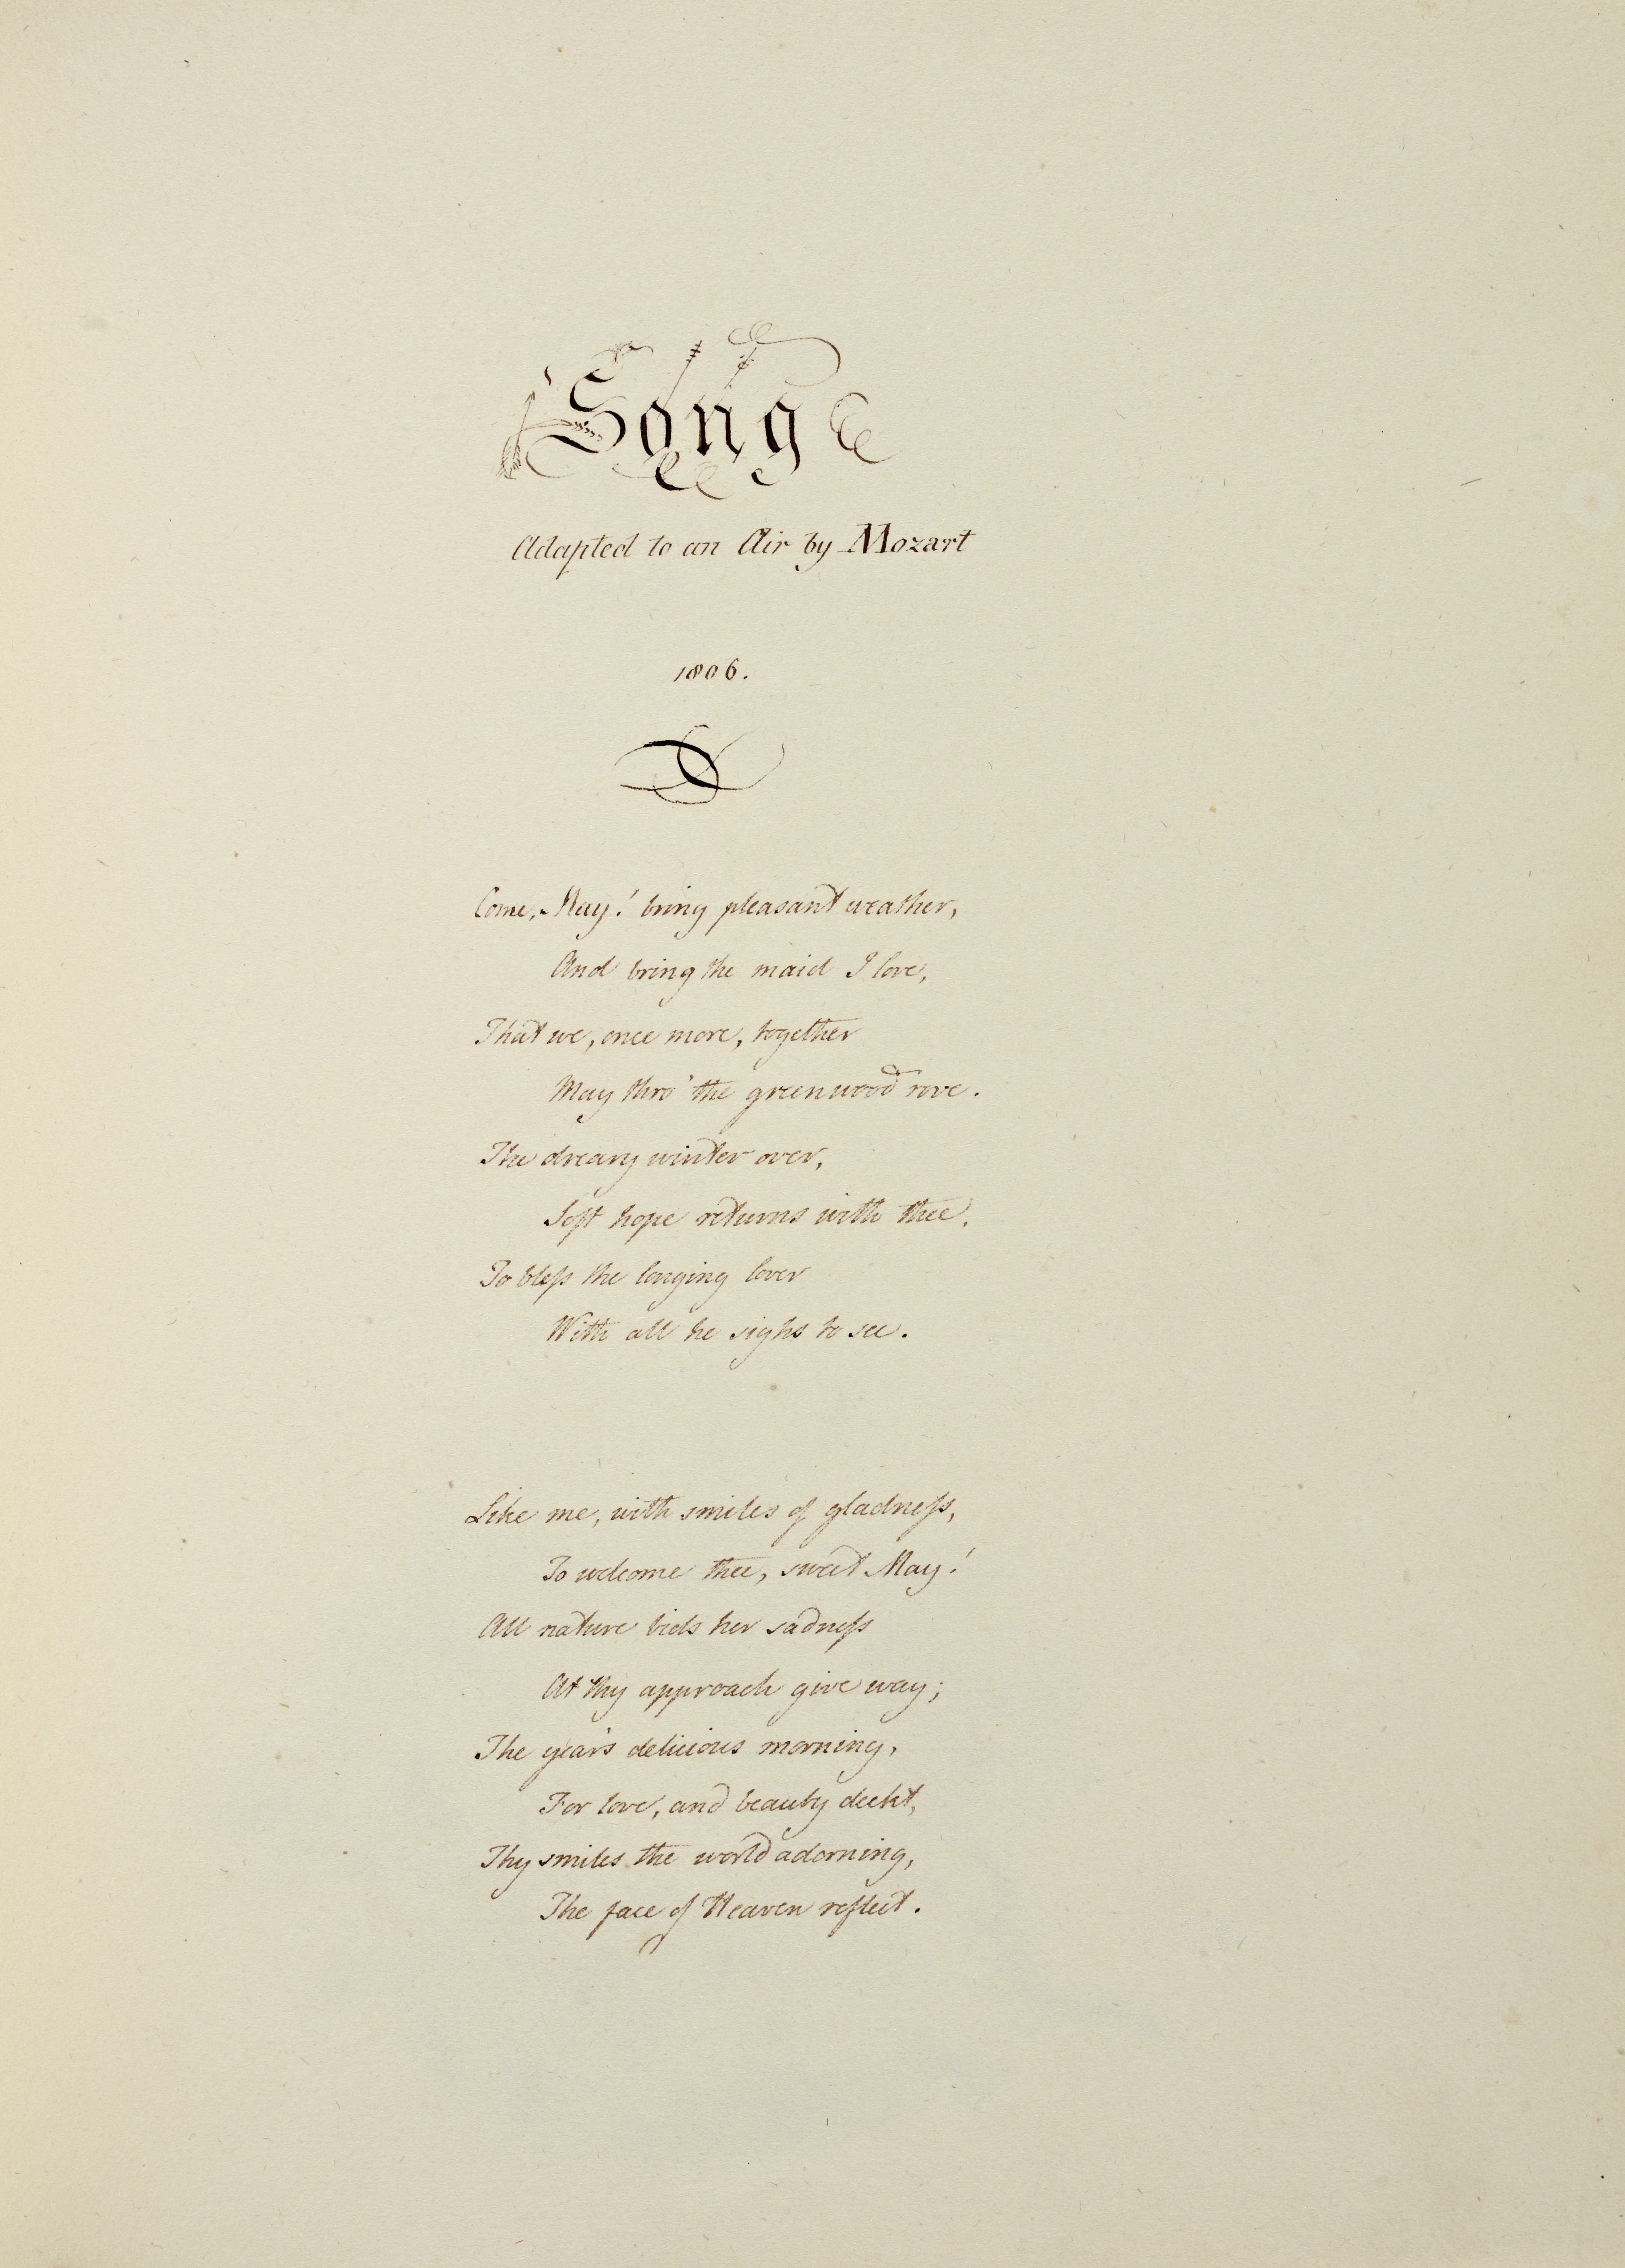 Song
Adapted to an Air by Mozart
1806.
Come, May! bring pleasant weather,
And bring the maid I love,
That we, once more, together
May thro' the greenwood rove.
The dreary winter over,
Soft hope returns with thee,
To bleſs the longing lover
With all he sighs to see.
Like me, with smiles of gladneſs,
To welcome thee, sweet May!
All nature bids her sadneſs
At thy approach give way;
The year's delicious morning,
For love, and beauty deckt,
Thy smiles the world adorning,
The face of Heaven reflect.